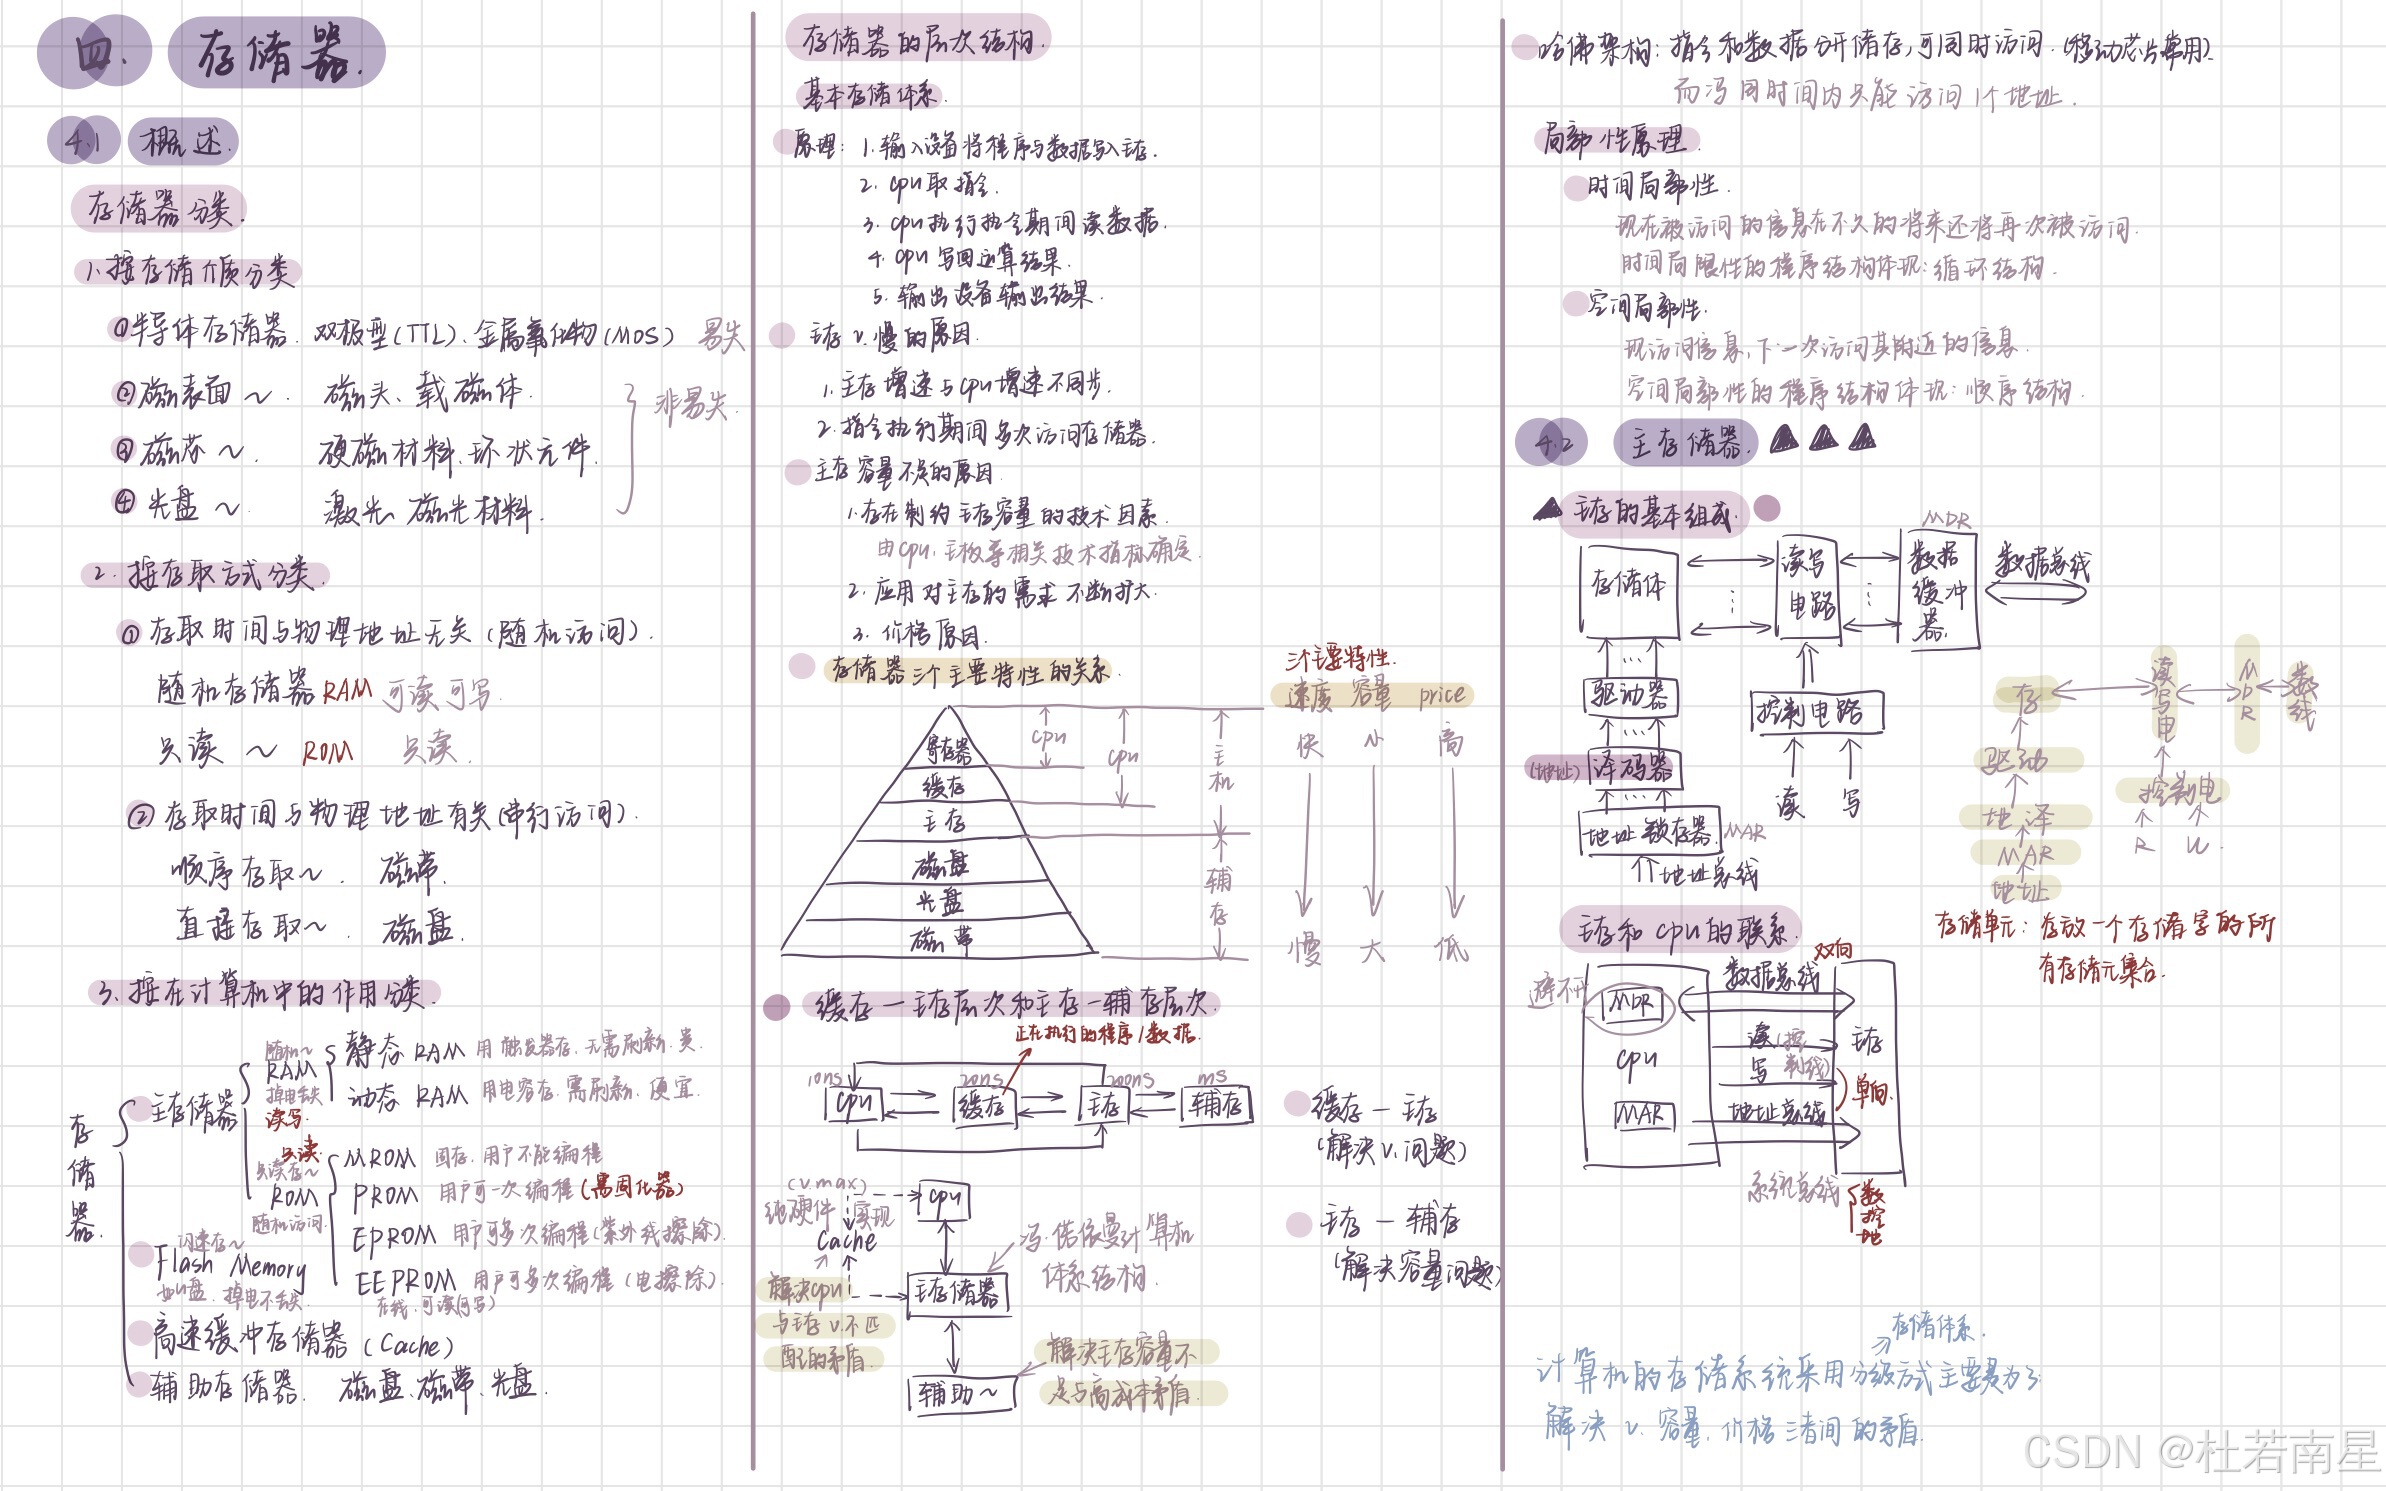 四. 存储器.
4.1 概述.
存储器分类.
1. 按存储介质分类
① 半导体存储器. 双极型(TTL)、金属氧化物(MOS) 易失
② 磁表面～. 磁头、载磁体.
③ 磁芯～. 硬磁材料、环状元件.
④ 光盘～. 激光、磁光材料.
非易失.
2. 按存取方式分类.
① 存取时间与物理地址无关(随机访问).
随机存储器 RAM 可读可写.
只读～ ROM 只读.
② 存取时间与物理地址有关(串行访问).
顺序存取～. 磁带.
直接存取～. 磁盘.
3. 按在计算机中的作用分类.
存储器.
主存储器
随机～
RAM
掉电丢失
读写.
静态 RAM 用触发器存, 无需刷新. 贵.
动态 RAM 用电容存. 需刷新. 便宜.
只读.
只读存～
ROM
随机访问.
MROM 固存. 用户不能编程
PROM 用户可一次编程(需固化器)
EPROM 用户可多次编程(紫外线擦除).
EEPROM 用户可多次编程(电擦除).
在线, 可读(可写)
闪速存～
Flash Memory
如U盘. 掉电不丢失.
高速缓冲存储器 (Cache)
辅助存储器. 磁盘、磁带、光盘.
存储器的层次结构.
基本存储体系.
原理: 1. 输入设备将程序与数据写入主存.
2. cpu取指令.
3. cpu执行执令期间读数据.
4. cpu写回运算结果.
5. 输出设备输出结果.
主存v.慢的原因.
1. 主存增速与cpu增速不同步.
2. 指令执行期间多次访问存储器.
主存容量不足的原因.
1. 存在制约主存容量的技术因素.
由cpu、主板等相关技术指标确定.
2. 应用对主存的需求不断扩大.
3. 价格原因.
存储器三个主要特性的关系.
三个主要特性.
速度 容量 price
快 小 高
慢 大 低
寄存器
缓存
主存
磁盘
光盘
磁带
cpu
cpu
主机
辅存
缓存－主存层次和主存－辅存层次.
正在执行的程序/数据.
10ns 20ns 200ns ms
cpu 缓存 主存 辅存
缓存－主存
(解决v.问题)
主存－辅存
(解决容量问题)
(v.max)
纯硬件实现
Cache
cpu
主存储器
辅助～
冯·诺依曼计算机
体系结构.
解决cpu
与主存v.不匹
配的矛盾.
解决主存容量不
足与高成本矛盾.
哈佛架构: 指令和数据分开储存, 可同时访问. (移动芯片常用).
而冯同时间内只能访问1个地址.
局部性原理.
时间局部性.
现在被访问的信息在不久的将来还将再次被访问.
时间局限性的程序结构体现: 循环结构.
空间局部性.
现访问信息, 下一次访问其附近的信息.
空间局部性的程序结构体现: 顺序结构.
4.2 主存储器.
主存的基本组成.
MDR
存储体 读写电路 数据缓冲器. 数据总线
驱动器 控制电路
(地址) 译码器 读 写
地址锁存器. MAR
地址总线
存 读写电 MDR 数线
驱动
控制电
地译
MAR R W.
地址
存储单元: 存放一个存储字的所
有存储元集合.
主存和cpu的联系.
避不开 MDR 数据总线 双向
cpu 读 写 (控制线) 主存
MAR 地址总线 单向.
系统总线 数 控 地
存储体系.
计算机的存储系统采用分级方式主要是为了
解决v. 容量. 价格三者间的矛盾.
CSDN @杜若南星